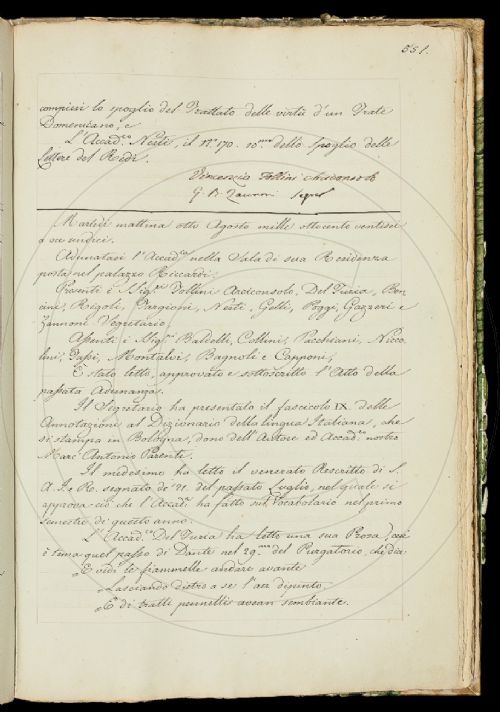 551.
compiesi lo spoglio del Trattato delle virtù d'un Frate
Domenicano, e
L'Accad.co Nesti, il n.o 170. 10.mo dello spoglio delle
Lettere del Redi.
Vincenzio Follini Arciconsolo
G. B. Zannoni Segr.o
Martedì mattina otto Agosto mille ottocento ventisei
a ore undici.
Adunatasi l'Accad.a nella Sala di sua Residenza
posta nel palazzo Riccardi.
Presenti i Sig.ri Follini Arciconsolo, Del Furia, Ben
cini, Rigoli, Targioni, Nesti, Gelli, Poggi, Gazzeri e
Zannoni Segretario.
Assenti i Sig.ri Baldelli, Collini, Pacchiani, Nicco
lini, Fossi, Montalvi, Bagnoli e Capponi,
È stato letto, approvato e sottoscritto l'Atto della
passata Adunanza.
Il Segretario ha presentato il fascicolo IX delle
Annotazioni al Dizionario della lingua Italiana, che
si stampa in Bologna, dono dell'Autore ed Accad.co nostro
Marc'Antonio Parenti.
Il medesimo ha letto il venerato Rescritto di S.
A. I. e R. segnato de' 21. del passato Luglio, nel quale si
approva ciò che l'Accad.a ha fatto sul Vocabolario nel primo
semestre di questo anno.
L'Accad.co Del Furia ha letto una sua Prosa,
è tema quel passo di Dante nel 29.mo del Purgatorio, che dice
E vidi le fiammelle andare avante
Lasciando dietro a se l'aer dipinto,
E di tratti pennelli avean sembiante.